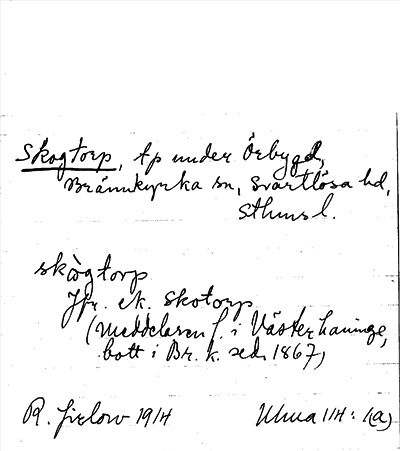 Skogtorp, tp under Örbygd,
Brännkyrka sn, Svartlösa hd,
Sthms l.
skògtorp
Jfr. ek. Skotorp
(meddelaren f. i Västerhaninge,
bott i Br. k. sed. 1867)
R. 1914
Ulma 114: 1(a)